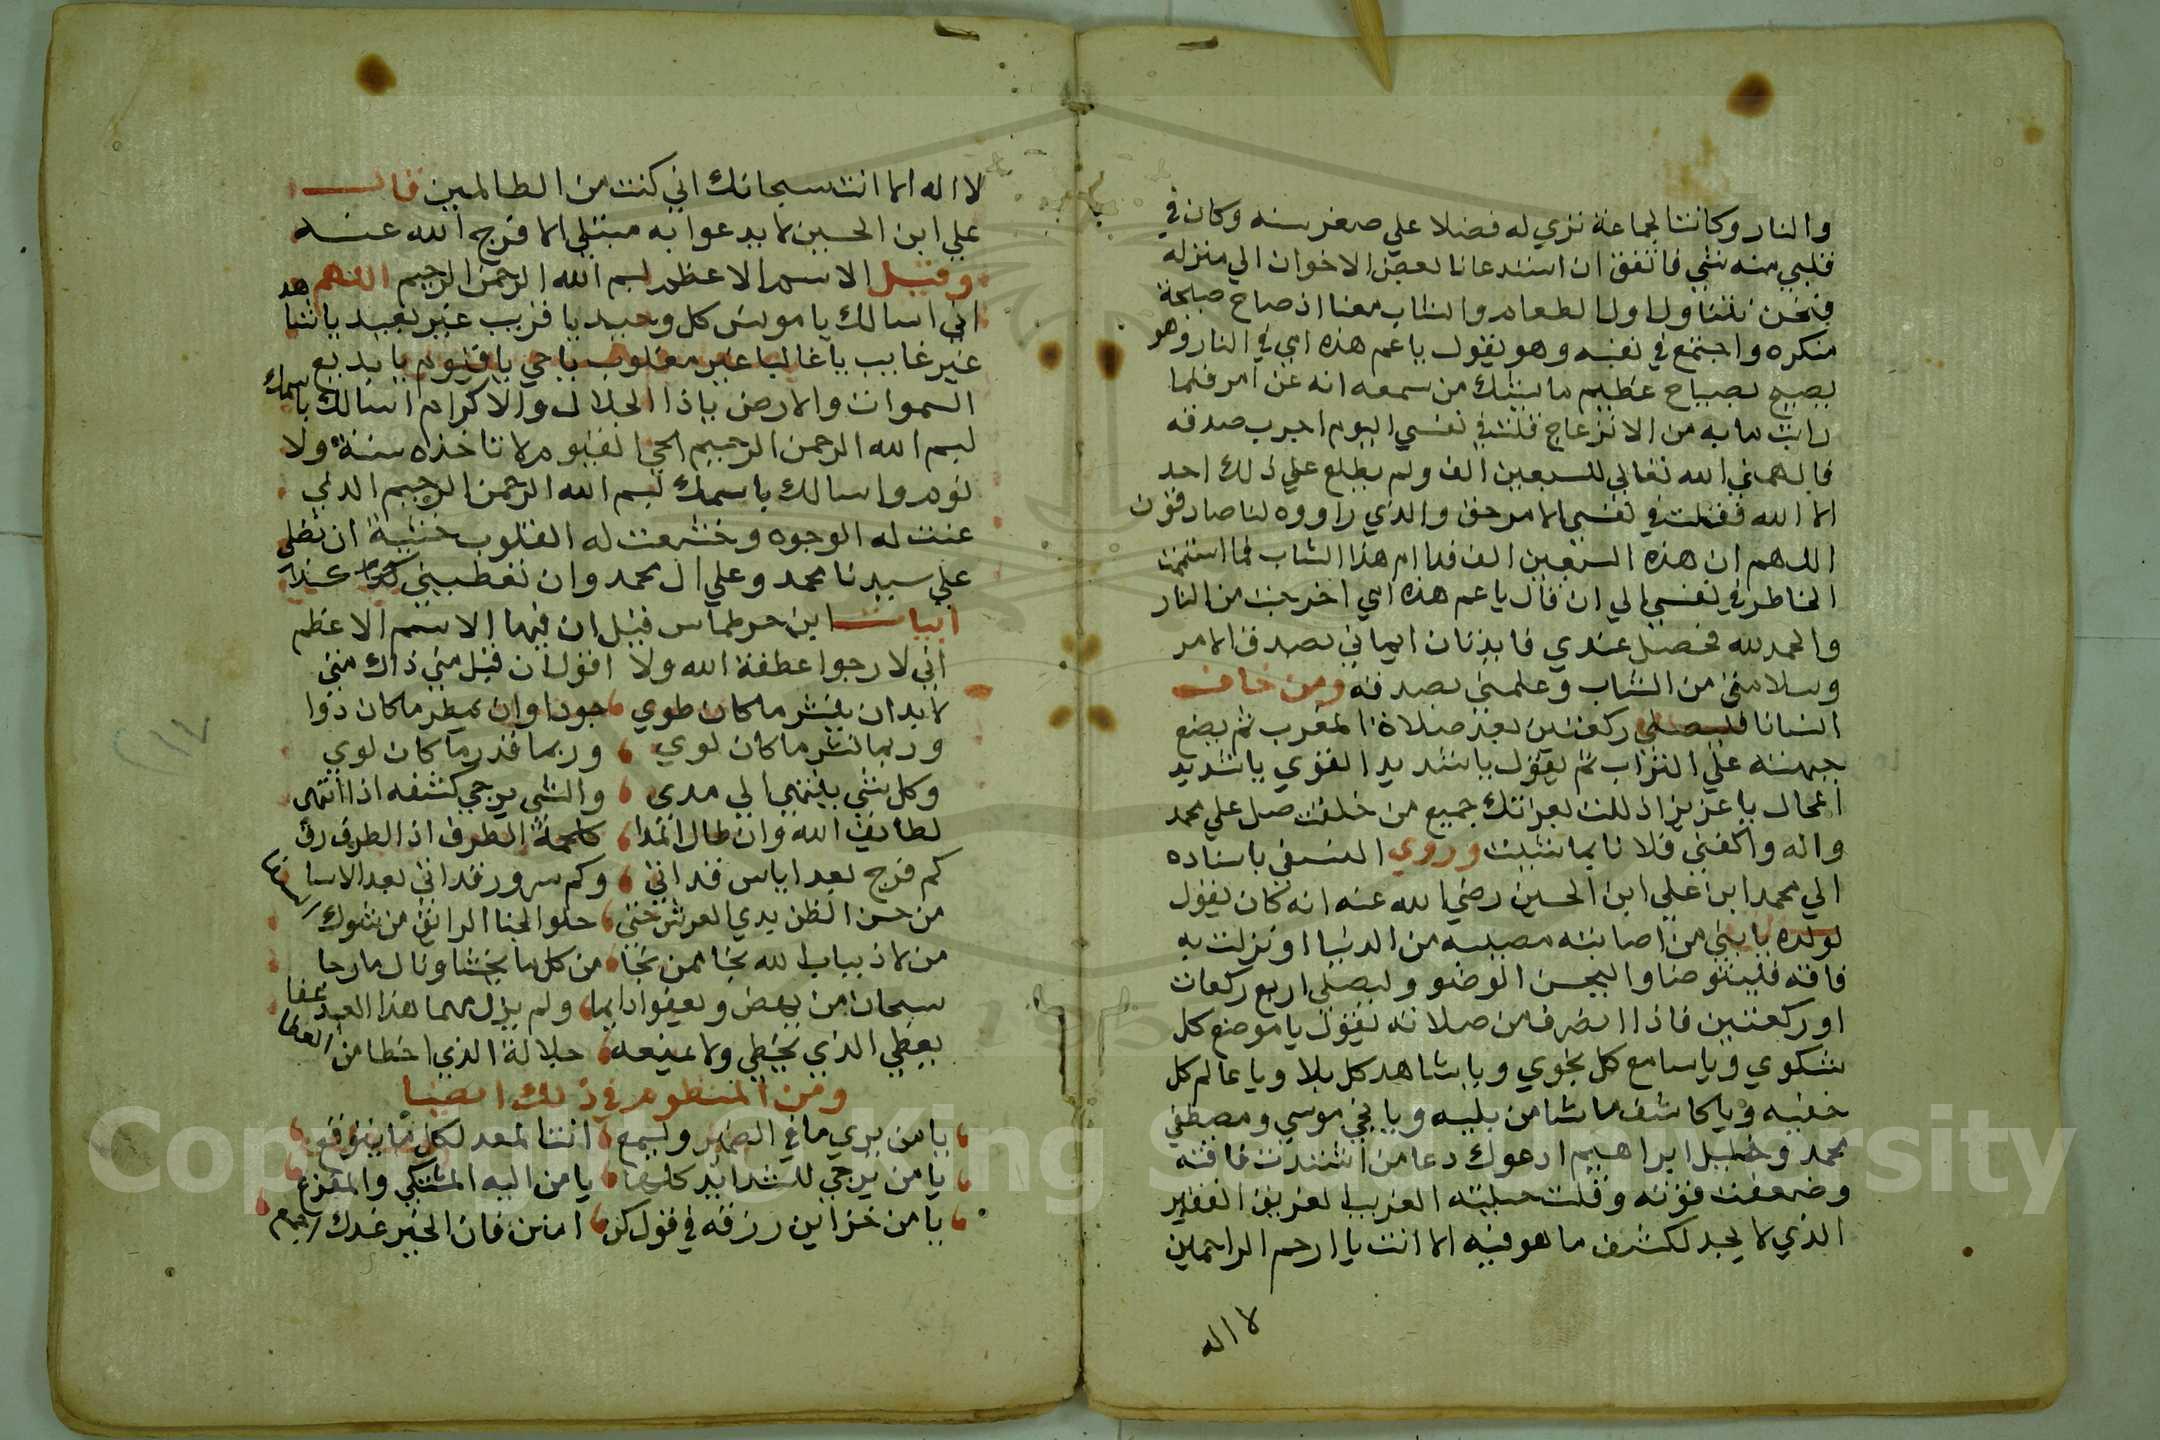 والنار وكانت الجماعة تري له فضلا علي صغر سنه وكان في
قلبي منه شي فاتفق ان استدعانا بعض الاخوان الي منزله
فنحن نتناول اول الطعام والشاب معنا اذ صاح صيحة
منكره واجتمع في نفسه وهو يقول يا عم هذه امي في النار وهو
يصيح بصياح عظيم ما يشك من سمعه انه عن امر فلما
رايت ما به من الانزعاج قلت في نفسي اليوم اجرب صدقه
فالهمني الله تعالي للسبعين الف ولم يطلع علي ذلك احد
الا الله فقلت في نفسي الامر حق والذي راووه لنا صادقون
اللهم ان هذه السبعين الف فدا ام هذا الشاب فما استتمت
الخاطر في نفسي الي ان قال يا عم هذه امي اخرجت من النار
والحمد لله فحصل عندي فايدتان ايماني بصدق الامر
وسلامتي من الشاب وعلمني بصدقه ومن خاف
انسانا فليصلي ركعتين بعد صلاة المغرب ثم يضع
جبهته علي التراب ثم يقول يا شديد القوي يا شديد
المحال يا عزيز اذللت بعزتك جميع من خلقت صل علي محمد
واله واكفني فلانا بما شيت وروي النسفي باسناده
الي محمد ابن علي ابن الحسين رضي الله عنه انه كان يقول
لولده يا بني من اصابته مصيبه من الدنيا او نزلت به
فاقه فليتوضا واليحسن الوضو وليصلي اربع ركعات
او ركعتين فاذا انصرف من صلاته يقول يا موضع كل
شكوي ويا سامع كل نجوي ويا شاهد كل بلا ويا عالم كل
خفيه ويا كاشف ما شا من بليه ويا نجي موسي ومصطفي
محمد وخليل ابراهيم ادعوك دعا من اشتدت فاقته
وضعفت قوته وقلت حيلته الغريب الغريق الفقير
الذي لا يجد لكشف ما هو فيه الا انت يا ارحم الراحمين
لا اله
لا اله الا انت سبحانك اني كنت من الظالمين قال
علي ابن الحسين لا يدعوا به مبتلي الا فرج الله عنه
وقيل الاسم الاعظم بسم الله الرحمن الرحيم اللهم
اني اسالك يا مونس كل وحيد يا قريب غير بعيد يا شاهد
غير غايب يا غالبا غير مغلوب يا حي يا قيوم يا بديع
السموات والارض يا ذا الجلال والاكرام اسالك باسمك
بسم الله الرحمن الرحيم الحي القيوم لا تاخذه سنة ولا
نوم واسالك باسمك بسم الله الرحمن الرحيم الذي
عنت له الوجوه وخشعت له القلوب خشية ان تصلي
علي سيدنا محمد وعلي ال محمد وان تعطيني كذا كذا
ابيات ابن حرطماس قيل ان فيها الاسم الاعظم
اني لارجوا عطفة الله ولا اقول ان قيل متي ذاك متي
لا بد ان ينشر ما كان طوي جودا وان يمطر ما كان ذوا
وربما نشر ما كان لوي وربما قدر ما كان لوي
وكل شي ينتهي الي مدي والشي يرجي كشفه اذا انتهي
لطايف الله وان طال المدا كلمحة الطرف اذ الطرف رق
كم فرج بعد اياس قد اتي وكم سرور قد اتي بعد الاسا
من حسن الظن بذي العرش جني حلو الجنا الرايق من شوك
من لاذ بباب الله نجا فيمن نجا من كل ما يخشا ونال ما رجا
سبحان من يغض ويعفوا دايما ولم يزل مهما هفا العبد عفا
يعطي الذي يخطي ولا يمنعه جلالة الذي اخطا من العطا
ومن المنظوم في ذلك ايضا
يا من يري ما في الضمير ويسمع انت المعد لكل ما يتوقع
يا من يرجي للشدايد كلها يا من اليه المشتكي والمفزع
يا من خزاين رزقه في قول كن امنن فان الخير عندك اجمع